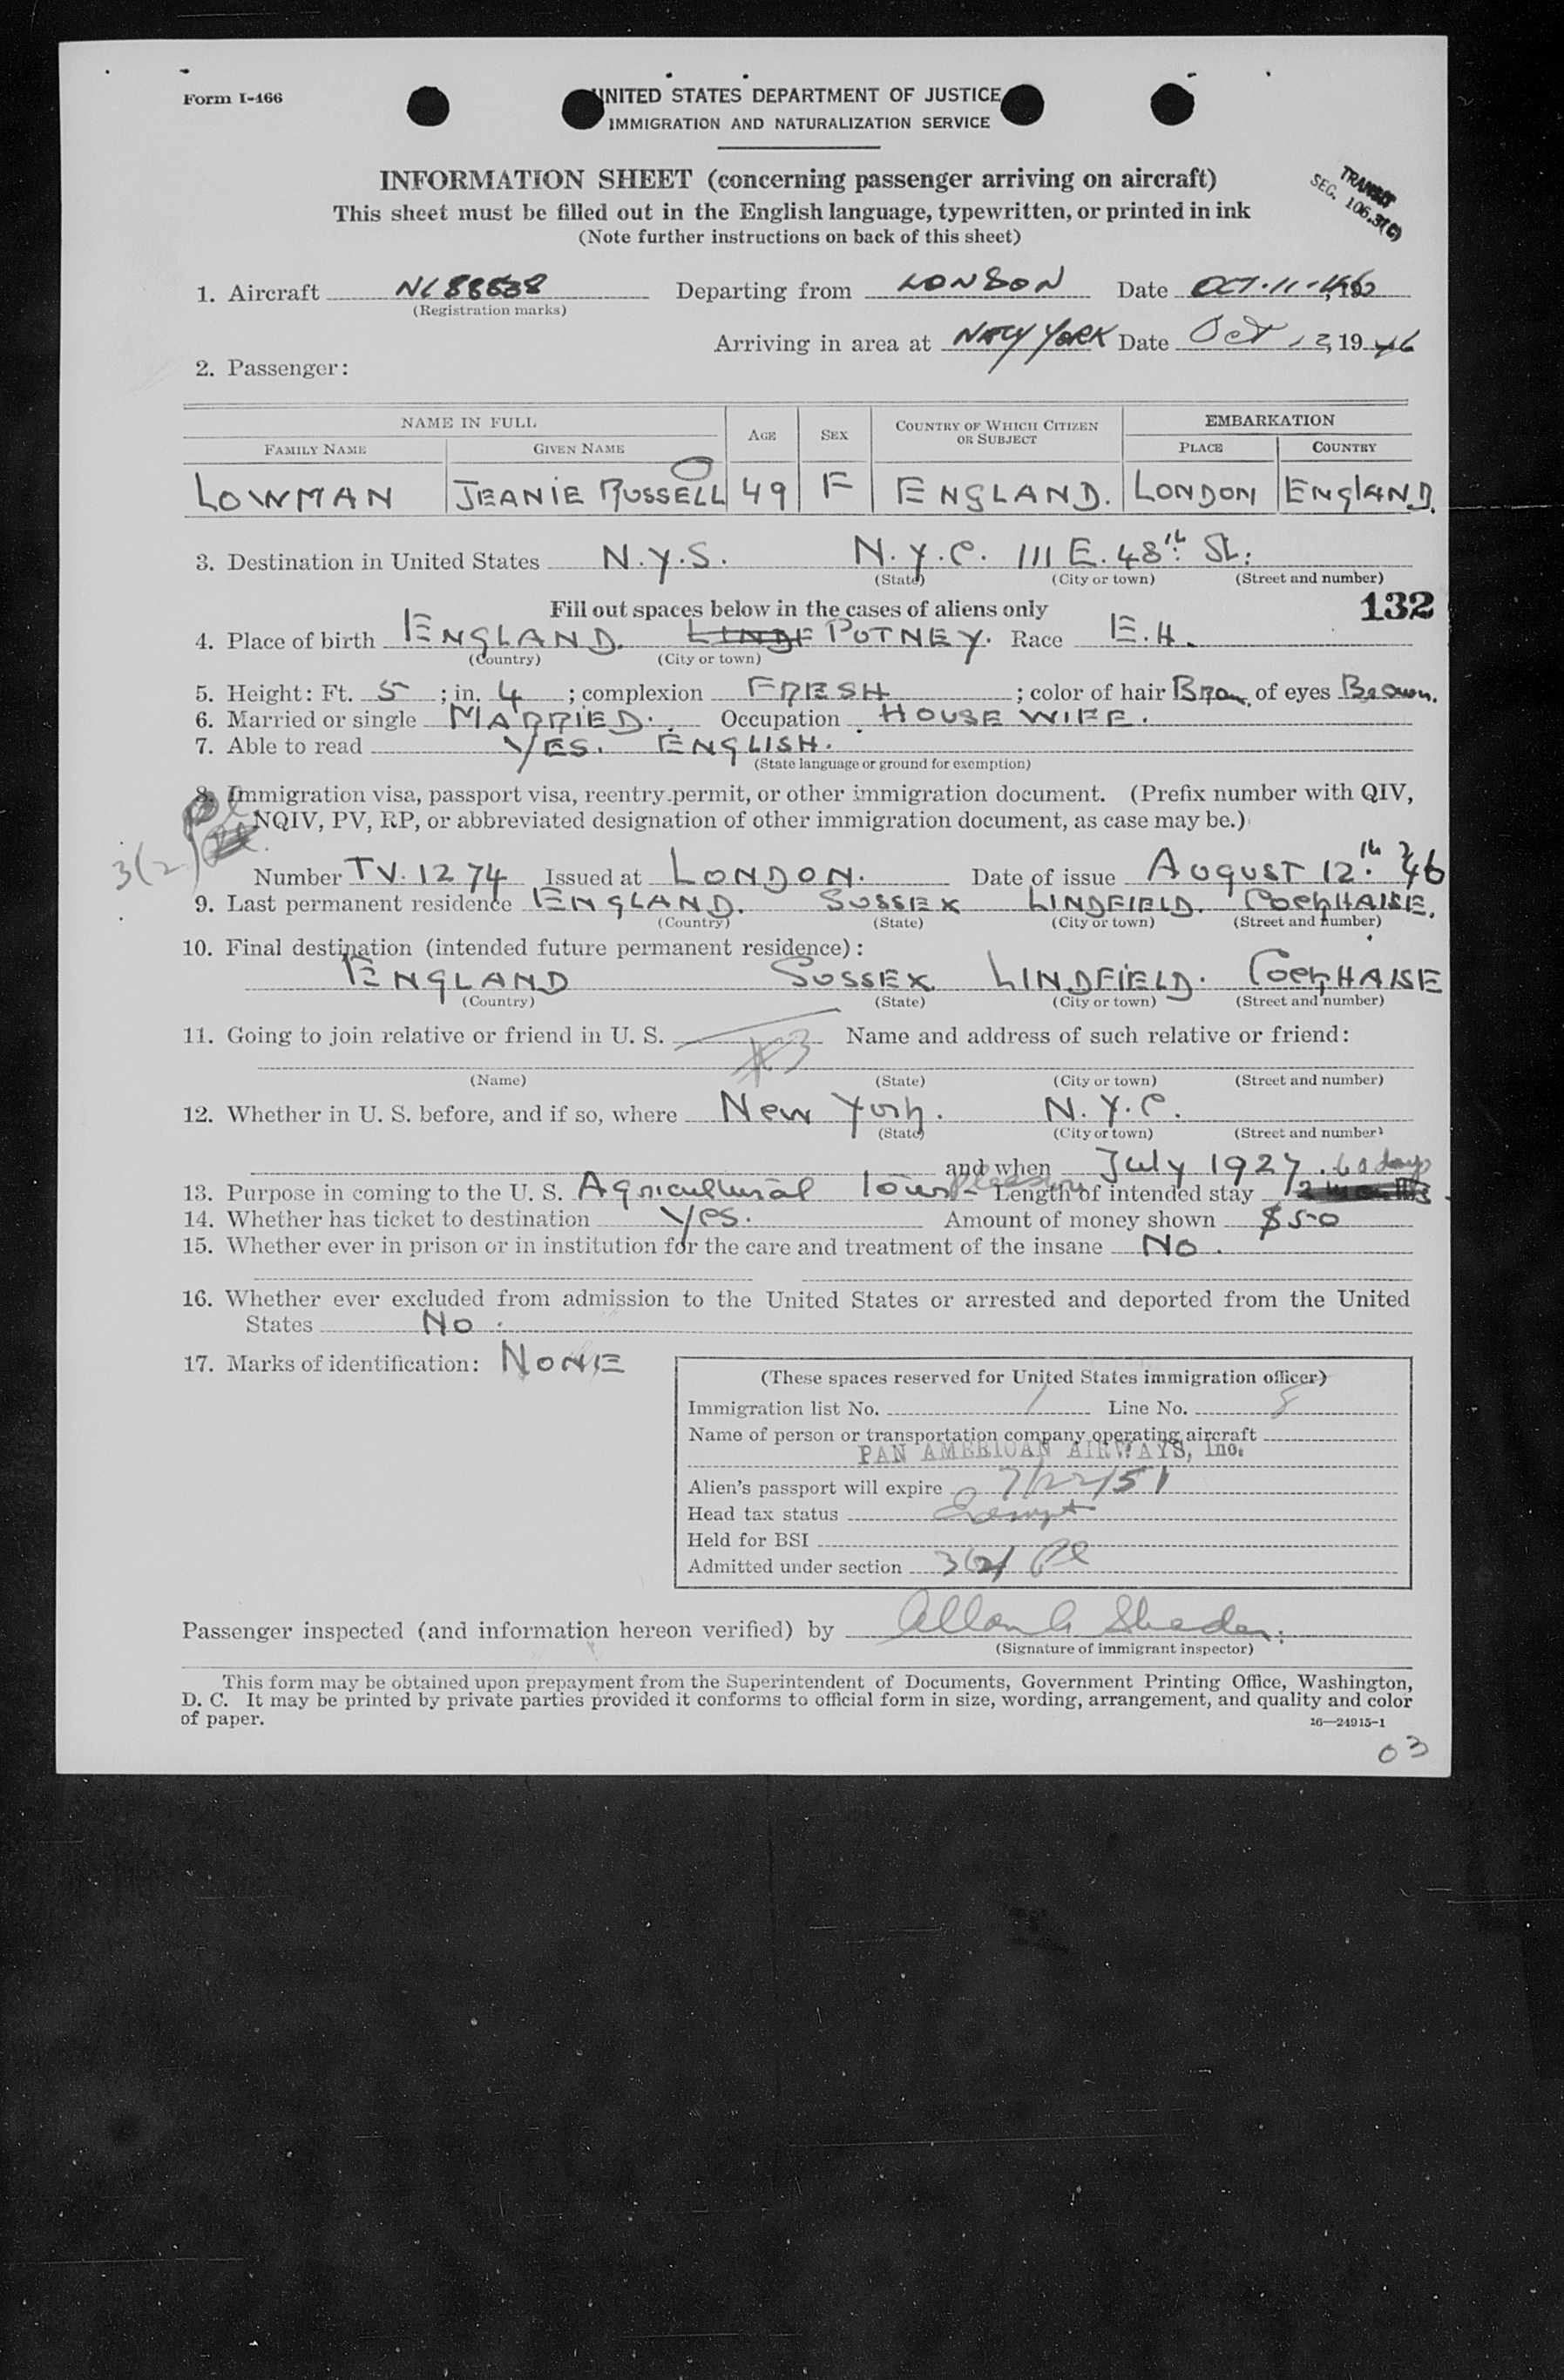 Form I-466
UNITED STATES DEPARTMENT OF JUSTICE
IMMIGRATION AND NATURALIZATION SERVICE
INFORMATION SHEET (concerning passenger arriving on aircraft)
TRANSIT
SEC. 106.3(C)
This sheet must be filled out in the English language, typewritten, or printed in ink
(Note further instructions on back of this sheet)
1. Aircraft NC 88838 Departing from LONDON Date OCT. 11.
(Registration marks)
Arriving in area at NEW YORK Date Oct 12, 1946
2. Passenger:
NAME IN FULL AGE SEX COUNTRY OF WHICH CITIZEN OR SUBJECT EMBARKATION
FAMILY NAME GIVEN NAME PLACE COUNTRY
LOWMAN JEANIE RUSSELL 49 F ENGLAND. LONDON ENGLAND.
3. Destination in United States N.Y.S. N.Y.C. 111 E. 48th St.
(State) (City or town) (Street and number)
Fill out spaces below in the cases of aliens only 132
4. Place of birth ENGLAND. PUTNEY. Race E.H.
(Country) (City or town)
5. Height: Ft. 5 ; in. 4 ; complexion FRESH ; color of hair Brown of eyes Brown.
6. Married or single MARRIED. Occupation HOUSE WIFE.
7. Able to read YES. ENGLISH.
(State language or ground for exemption)
8. Immigration visa, passport visa, reentry permit, or other immigration document. (Prefix number with QIV,
NQIV, PV, RP, or abbreviated designation of other immigration document, as case may be.)
3(2) Pl
Number TV. 1274 Issued at LONDON. Date of issue AUGUST 12th. '46
9. Last permanent residence ENGLAND. SUSSEX LINDFIELD. COCKHAISE.
(Country) (State) (City or town) (Street and number)
10. Final destination (intended future permanent residence):
ENGLAND SUSSEX LINDFIELD. COCKHAISE
(Country) (State) (City or town) (Street and number)
11. Going to join relative or friend in U. S. #3 Name and address of such relative or friend:
(Name) (State) (City or town) (Street and number)
12. Whether in U. S. before, and if so, where New York. N.Y.C.
(State) (City or town) (Street and number)
and when July 1927. 60 days
13. Purpose in coming to the U. S. Agricultural Tour - Pleasure Length of intended stay 2 months
14. Whether has ticket to destination Yes. Amount of money shown $50
15. Whether ever in prison or in institution for the care and treatment of the insane No.
16. Whether ever excluded from admission to the United States or arrested and deported from the United
States No.
17. Marks of identification: NONE
(These spaces reserved for United States immigration officer)
Immigration list No. 1 Line No. 8
Name of person or transportation company operating aircraft
PAN AMERICAN AIRWAYS, Inc.
Alien's passport will expire 7/22/51
Head tax status Exempt
Held for BSI
Admitted under section 3(2) Pl
Passenger inspected (and information hereon verified) by
(Signature of immigrant inspector)
This form may be obtained upon prepayment from the Superintendent of Documents, Government Printing Office, Washington,
D. C. It may be printed by private parties provided it conforms to official form in size, wording, arrangement, and quality and color
of paper.
16—24915-1
03